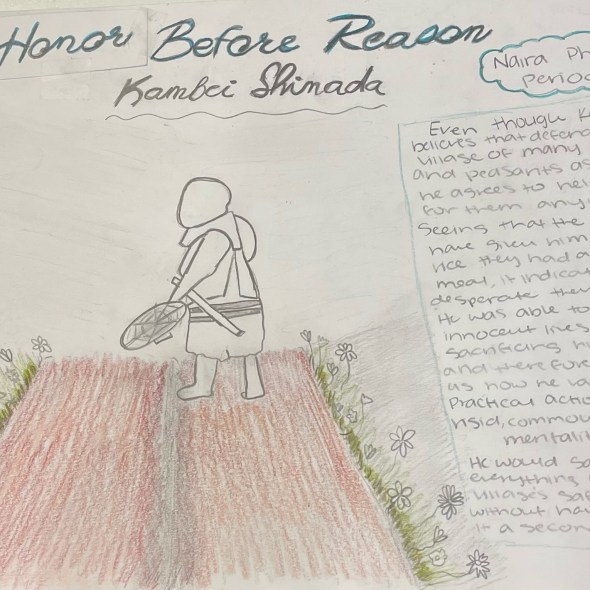 Honor Before Reason
Kambei Shimada
Naira Ph
Perio
Even though K
believes that defend
village of many
and peasants as
he agrees to hel
for them any
seeing that the
have given him
rice they had a
meal, it indicat
desperate the
He was able to
innocent lives
sacrificing hi
and therefore
us how he va
practical actio
rigid, commo
mentalit
He would sa
everything
village's saf
without ha
it a secon